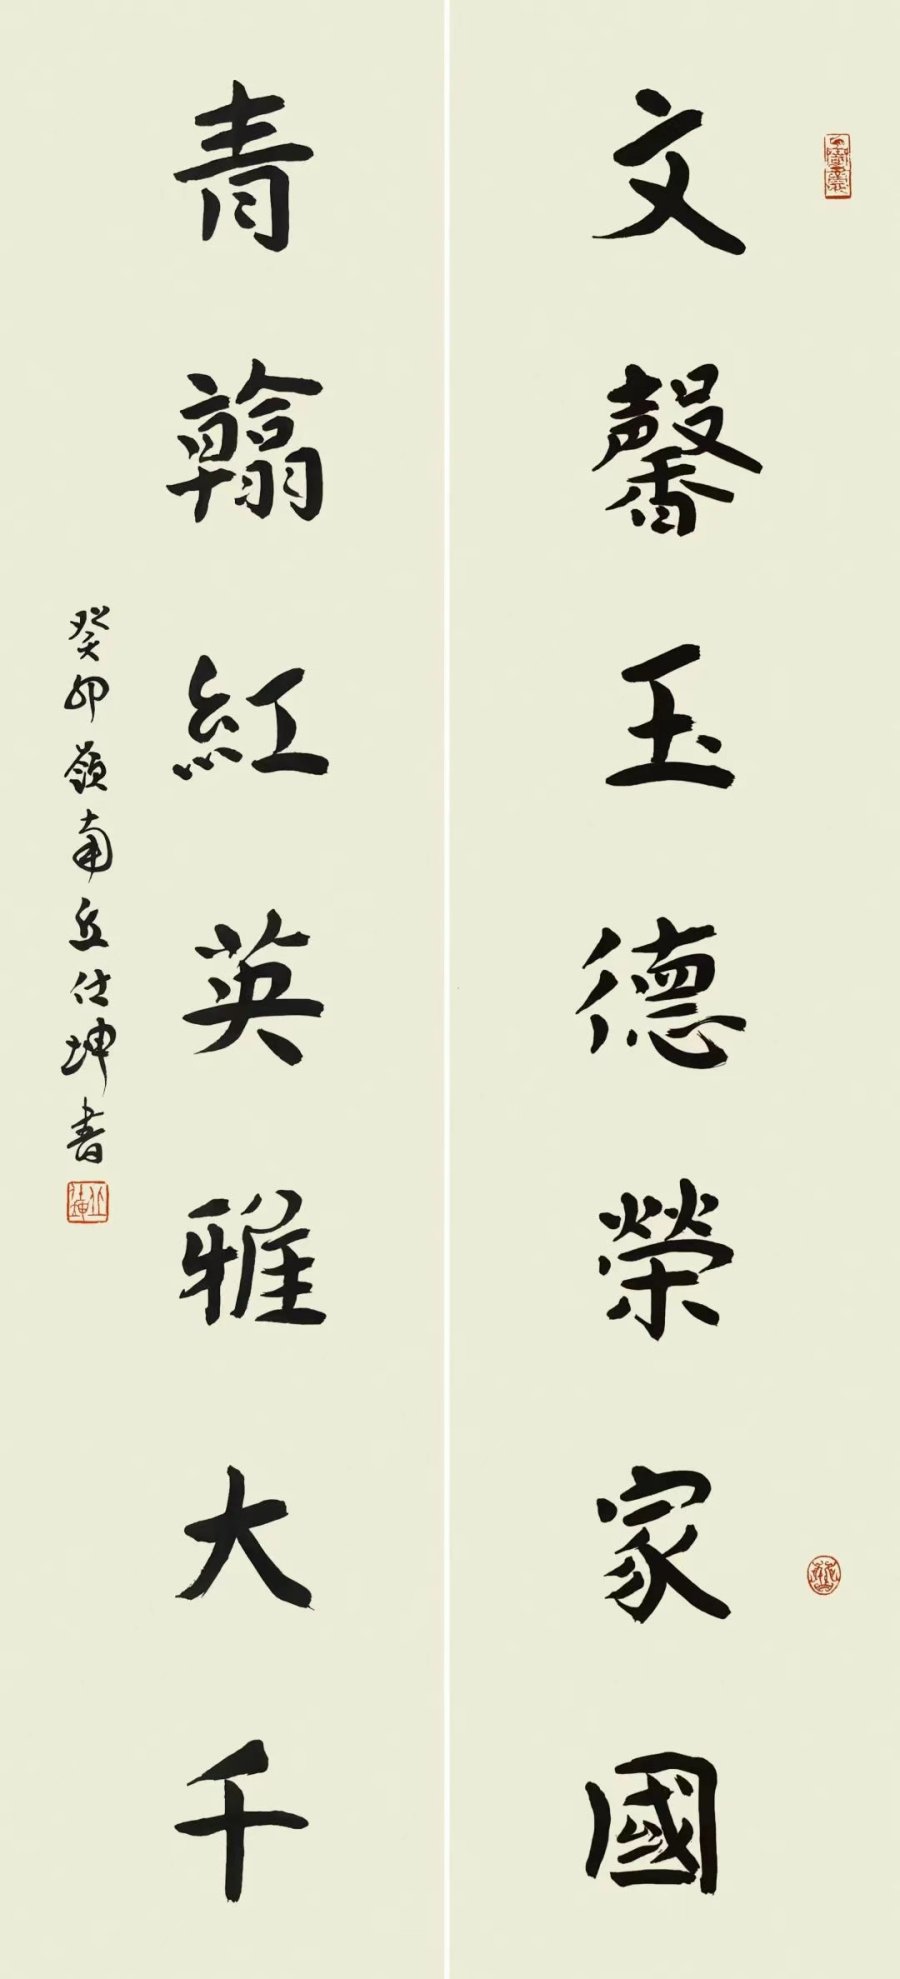 文馨玉德榮家國
青翰紅英雅大千
癸卯嶺南丘仕坤書